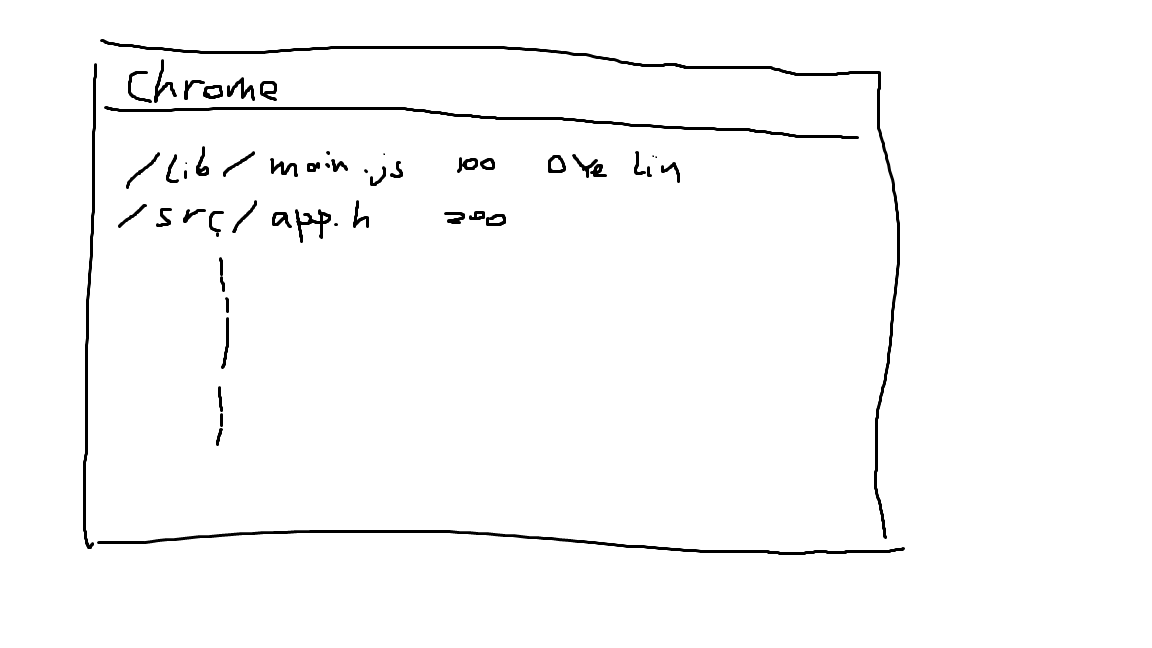 Chrome
/Lib/main.js 100 OYe Lin
/src/app.h 200